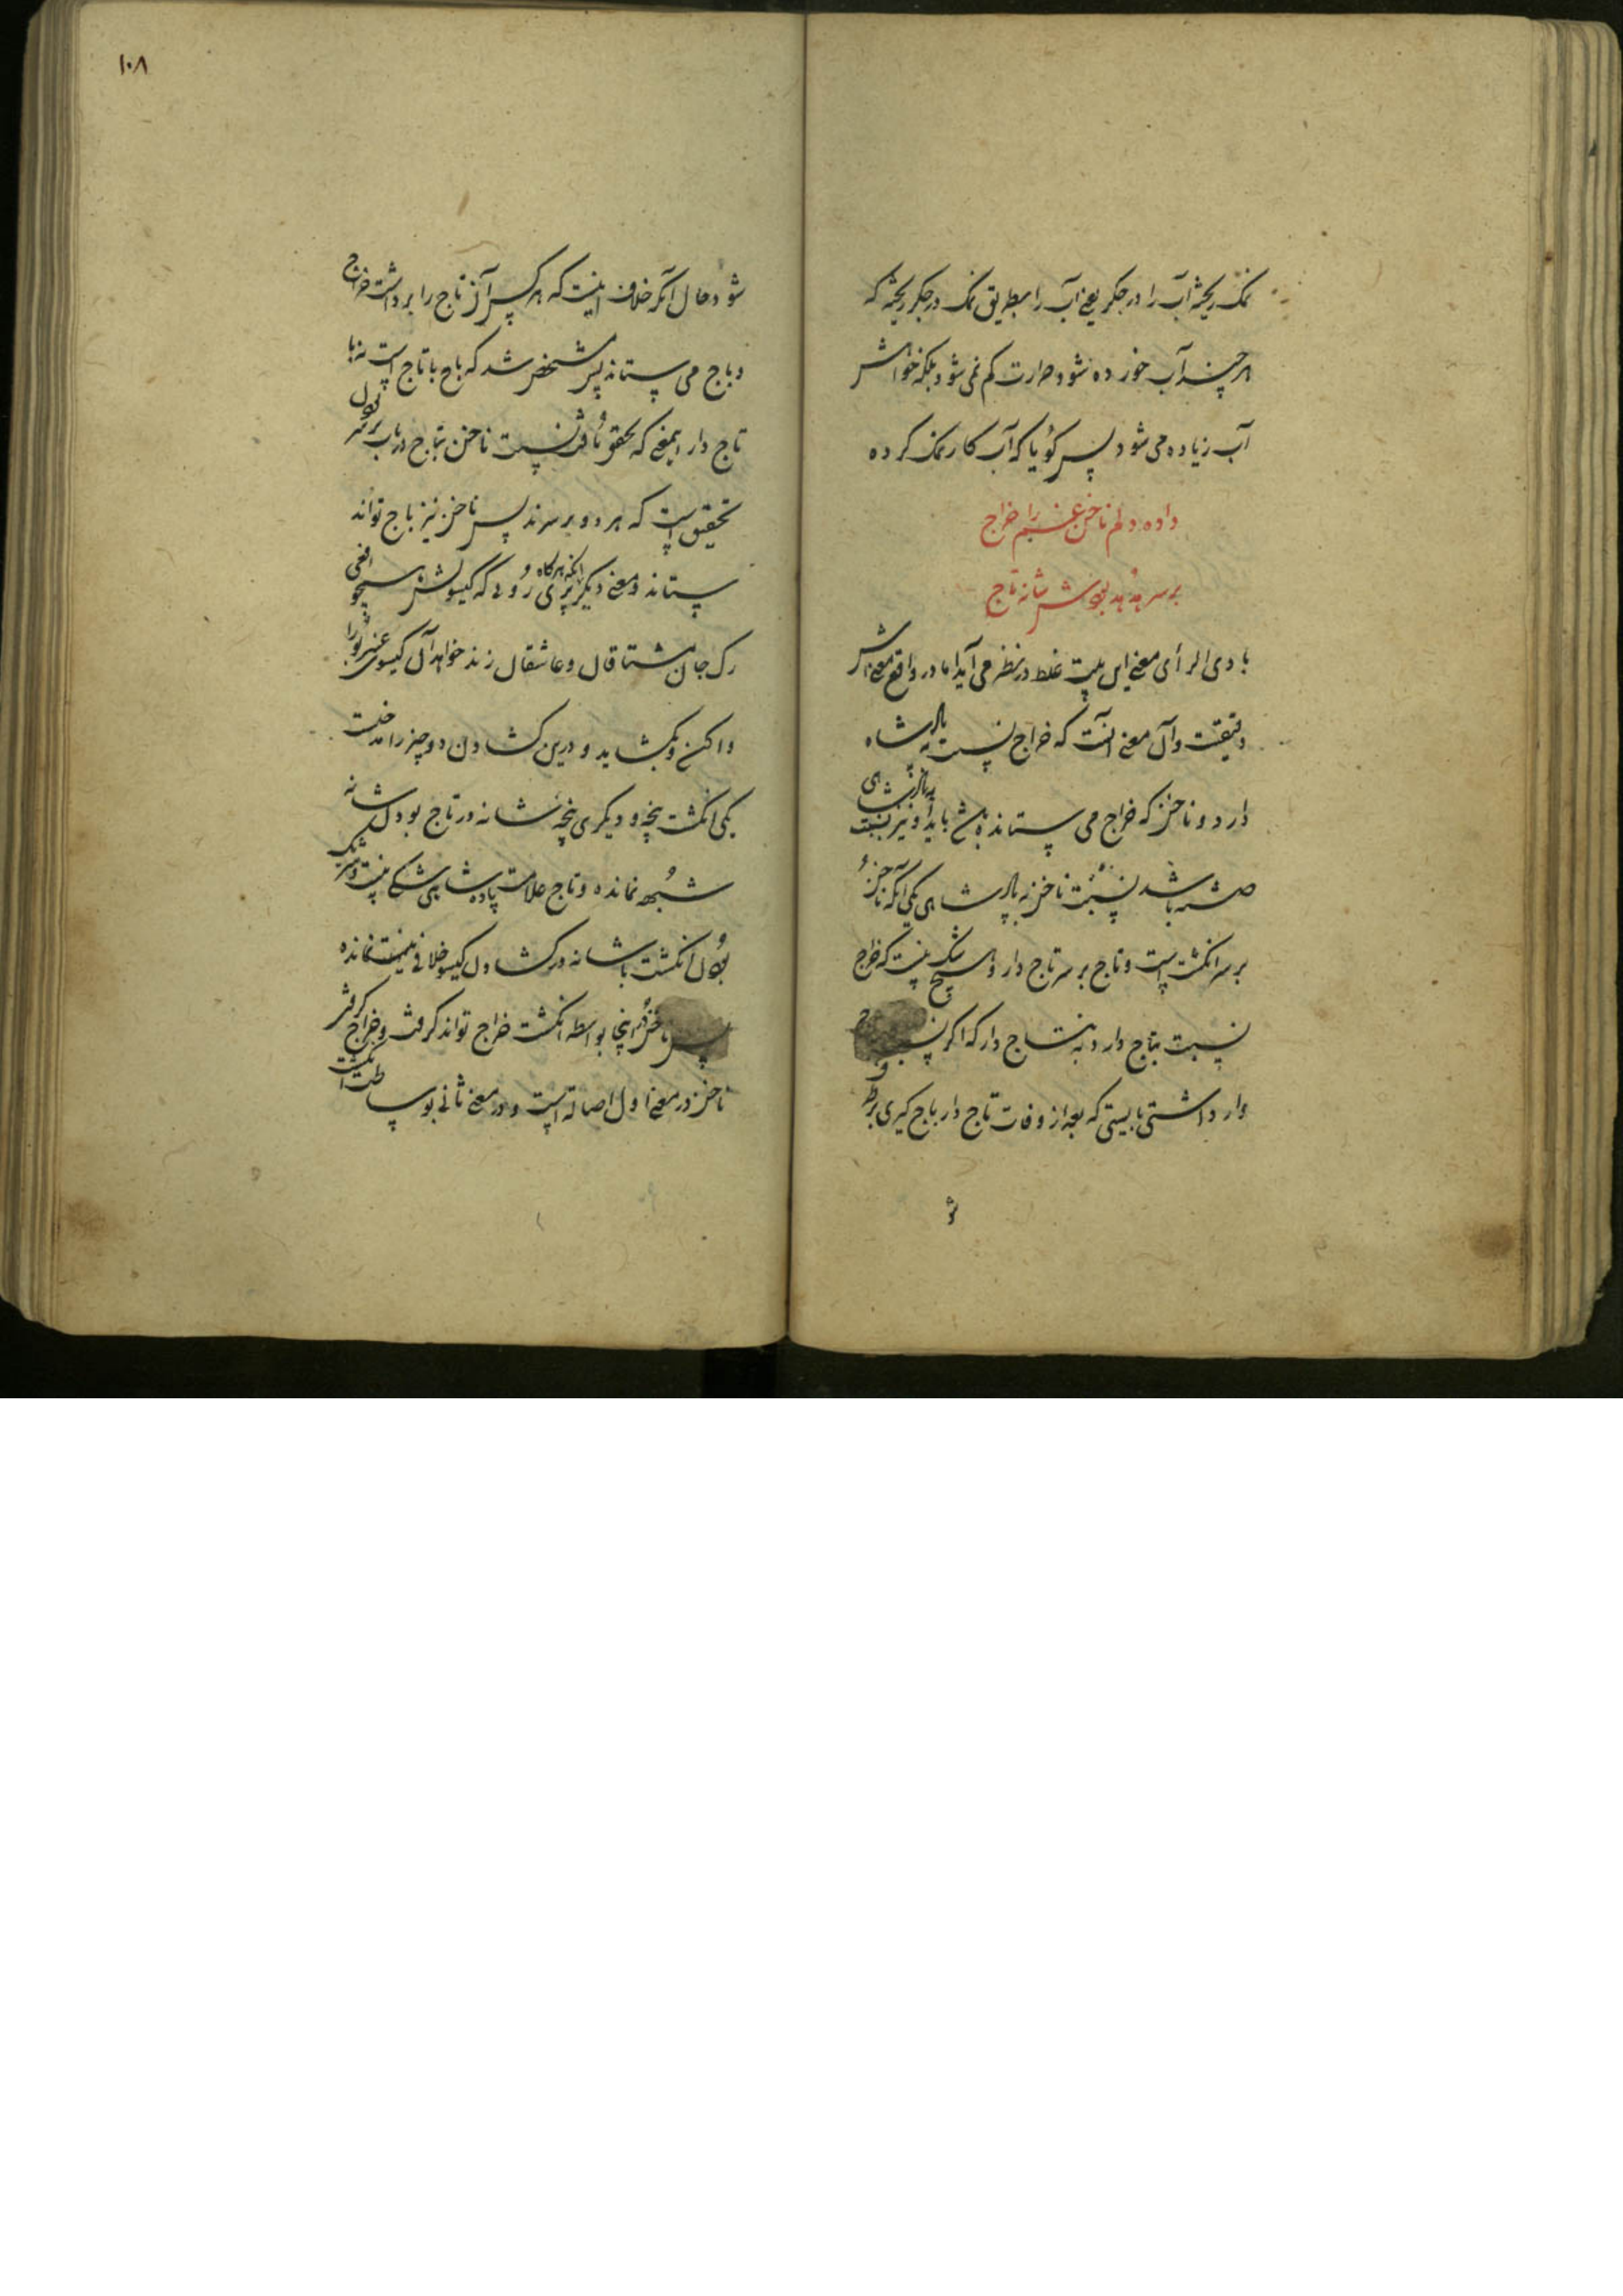 نمک ریخته آب را در جکر یعنی آب را بطریق نمک در جکر ریخته که
هر چند آب خورده شود حرارت کم نمی شود بلکه خواهش
آب زیاده می شود پس کویا که آب کار نمک کرده
داده دلم ناخن غم را خراج
بر سر هدهد بودش شانه تاج
بادی الرأی معنی این بیت غلط در نظر می آید اما در واقع معنی اش
دقیقست و آن معنی آنست که خراج نسبت به پادشاه
دارد و ناخن که خراج می ستاند باید او نیز نسبت به پادشاهی
باشد نسبت ناخن به پادشاهی یکی آنکه ناخن
بر سر انکشت است و تاج بر سر تاج دار و هیچ شک نیست که خراج
نسبت بتاج دارد نه بتاج دار که اکر
وار داشتی بایستی که بعد از وفات تاج دار باج کیری بر طرف
شو
۱۰۸
شود و حال آنکه خلاف اینست که هر کس آن تاج را برداشت خراج
و باج می ستاند پس مشخص شد که باج با تاج است نه با
تاج دار نسبت ناخن بتاج در باب بر سر بودن
تحقیق است که هر دو بر سرند پس ناخن نیز باج تواند
ستاند و معنی دیکر آنکه هر کاه پری روئی که کیسویش افعی
رک جان مشتاقان و عاشقان زند خواهد آن کیسوی عنبر بو را
واکند و بکشاید و درین کشادن دو چیز را مدخلست
یکی انکشت پنجه و دیکری پنجه شانه در تاج بودن شانه
شبهه نمانده و تاج علامت پادشاهی شکی نیست و شریک
بودن انکشت با شانه در کشادن کیسو خلافی نیست نمانده
پس ناخن اینجا بواسطه انکشت خراج تواند کرفت و خراج کرفتن
ناخن در معنی اول اصالة است و در معنی ثانی بوساطت انکشت